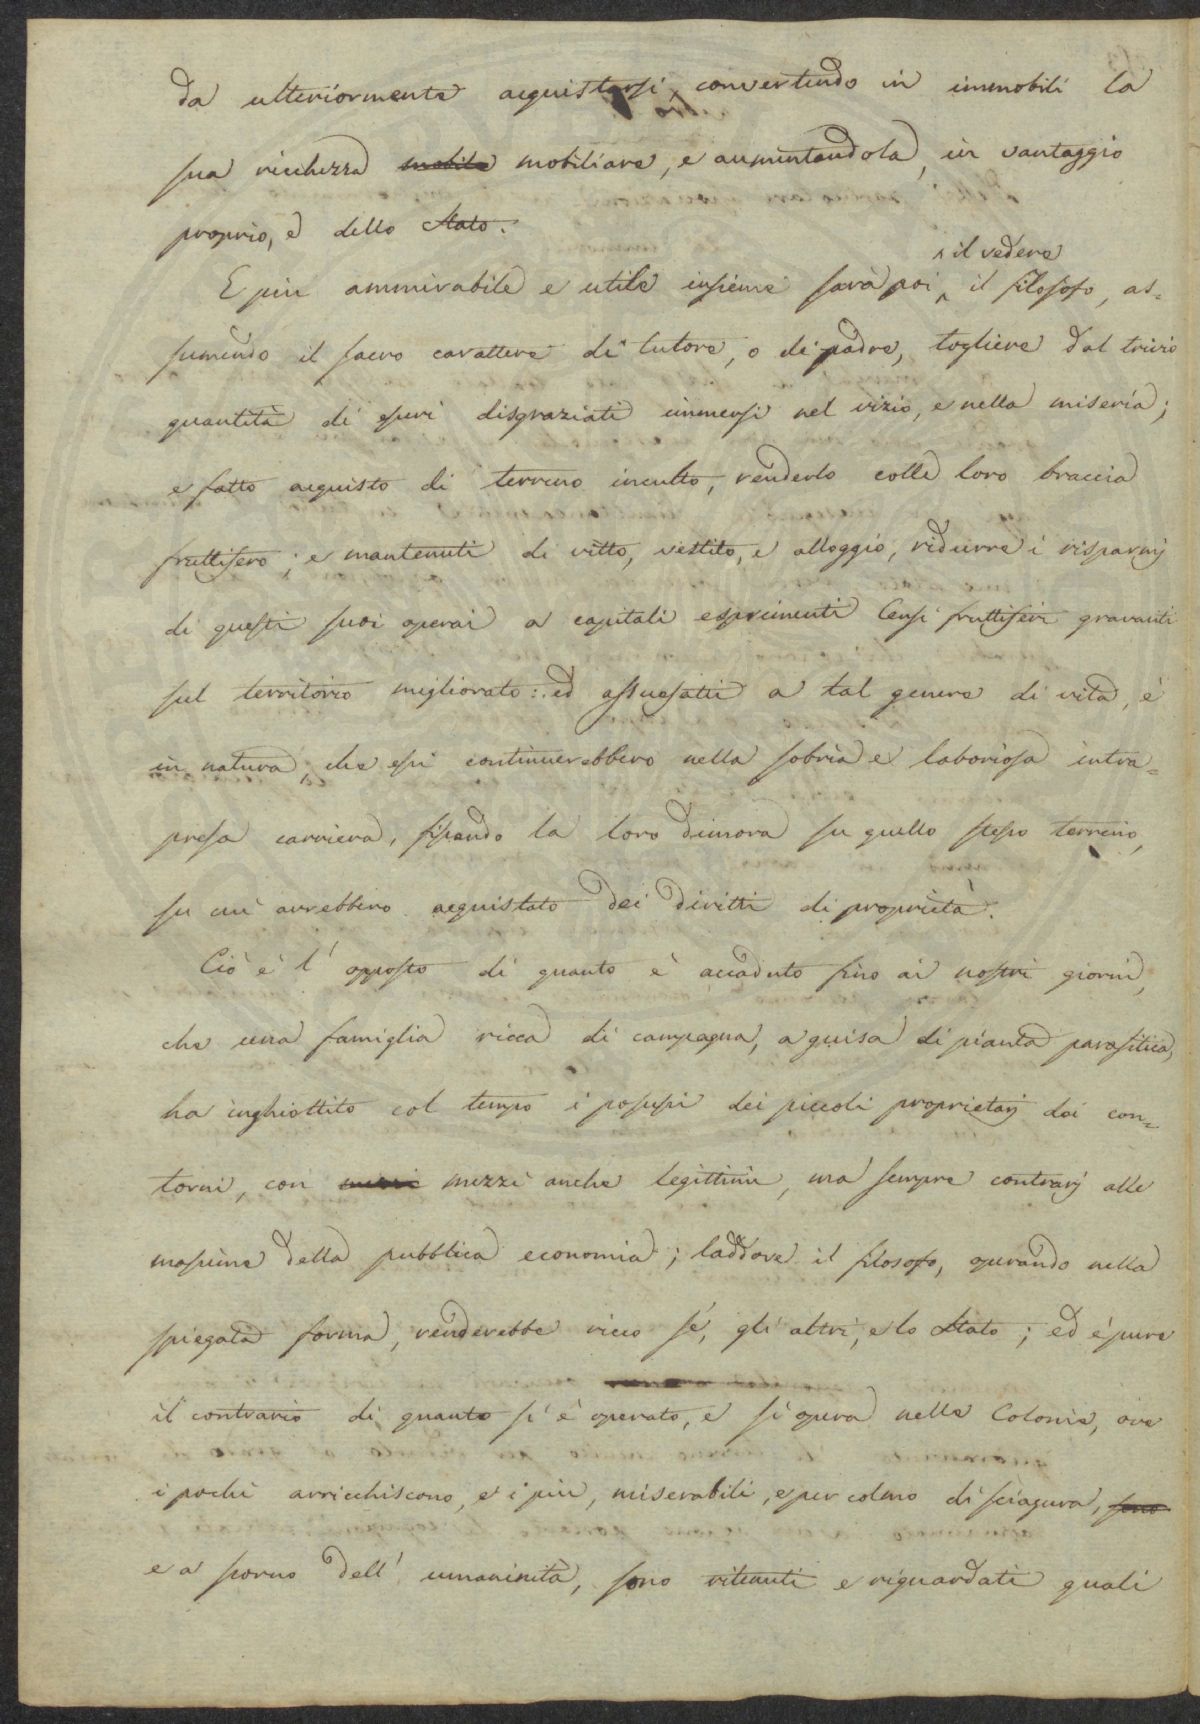 da ulteriormente acquistarsi, convertendo in immobili la
sua ricchezza mobile mobiliare, e aumentandola, in vantaggio
proprio, e dello Stato.
il vedere
E più ammirabile e utile insieme sarà poi, il filosofo, as=
sumendo il sacro carattere di tutore, o di padre, togliere dal trivio
quantità di esseri disgraziati immersi nel vizio, e nella miseria;
e fatto acquisto di terreno inculto, renderlo colle loro braccia
fruttifero; e mantenuti di vitto, vestito, e alloggio, ridurre i risparmj
di questi suoi operai a capitali esprimenti Censi fruttiferi gravanti
sul territorio migliorato: ed assuefatti a tal genere di vita, è
in natura, che essi continuerebbero nella sobria e laboriosa intra=
presa carriera, fissando la loro dimora su quello stesso terreno,
su cui avrebbero acquistato dei diritti di proprietà.
Ciò è l' opposto di quanto è accaduto fino ai nostri giorni,
che una famiglia ricca di campagna, a guisa di pianta parasitica,
ha inghiottito col tempo i possessi dei piccoli proprietarj dei con=
torni, con mezzi anche legittimi, ma sempre contrarj alle
massime della pubblica economia; laddove il filosofo, operando nella
spiegata forma, renderebbe ricco sé, gli altri, e lo Stato; ed è pure
il contrario di quanto si è operato, e si opera nelle Colonie, ove
i pochi arricchiscono, e i più, miserabili, e per colmo di sciagura, sono
e a scorno dell' umaninità, sono ritenuti e riguardati quali